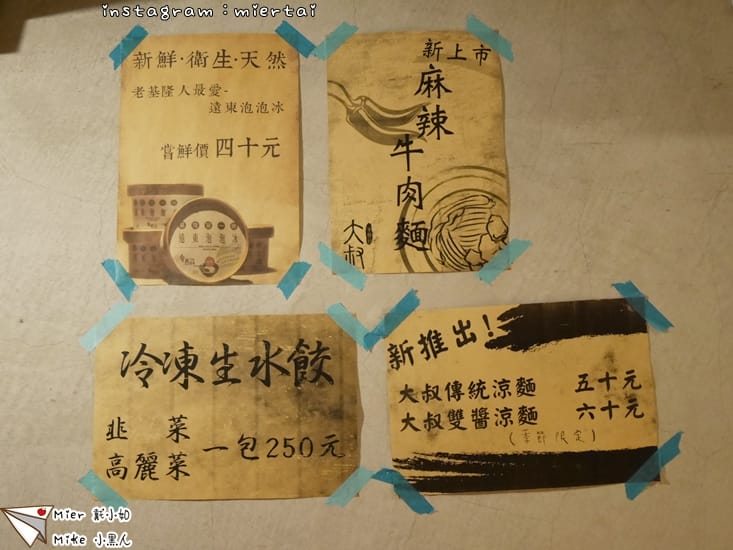 instagram：miertai
新鮮·衛生·天然
老基隆人最愛-
遠東泡泡冰
嘗鮮價 四十元
遠東泡泡冰
新上市
麻辣牛肉麵
大叔
冷凍生水餃
韭菜
高麗菜
一包250元
新推出!
大叔傳統涼麵 五十元
大叔雙醬涼麵 六十元
(季節限定)
Mier 彭小如
Mike 小黑人